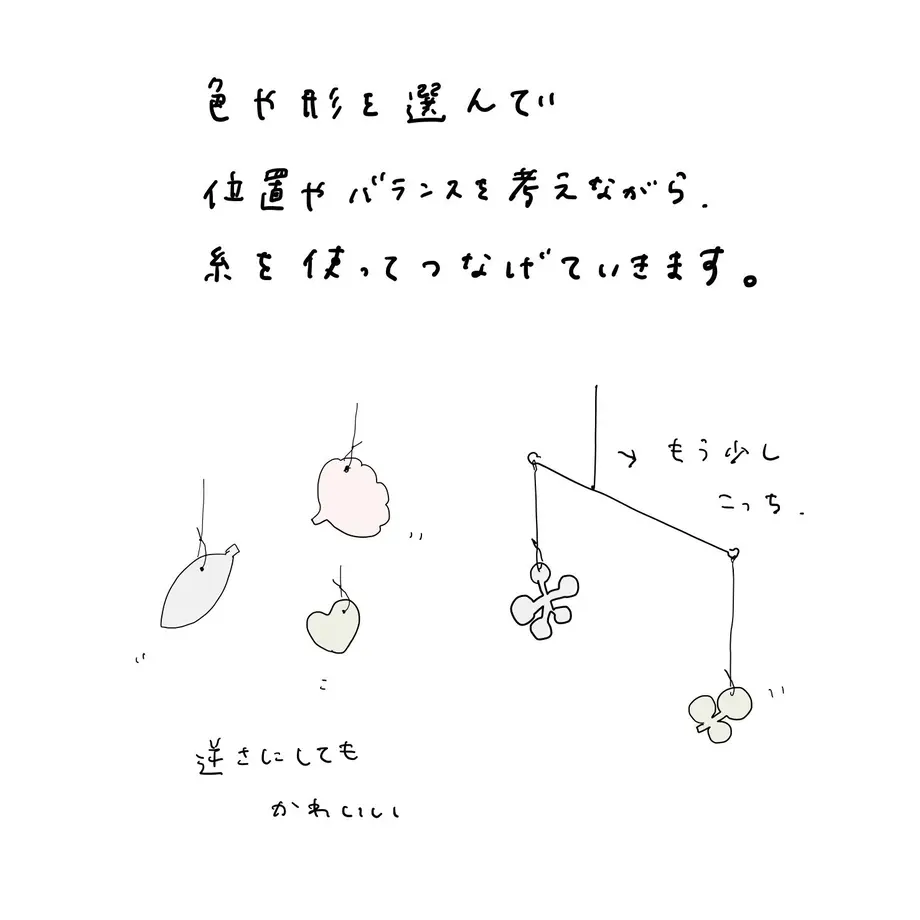 色や形を選んでい
位置やバランスを考えながら.
糸を使ってつなげていきます。
→ もう少し
こっち.
逆さにしても
かわいいし